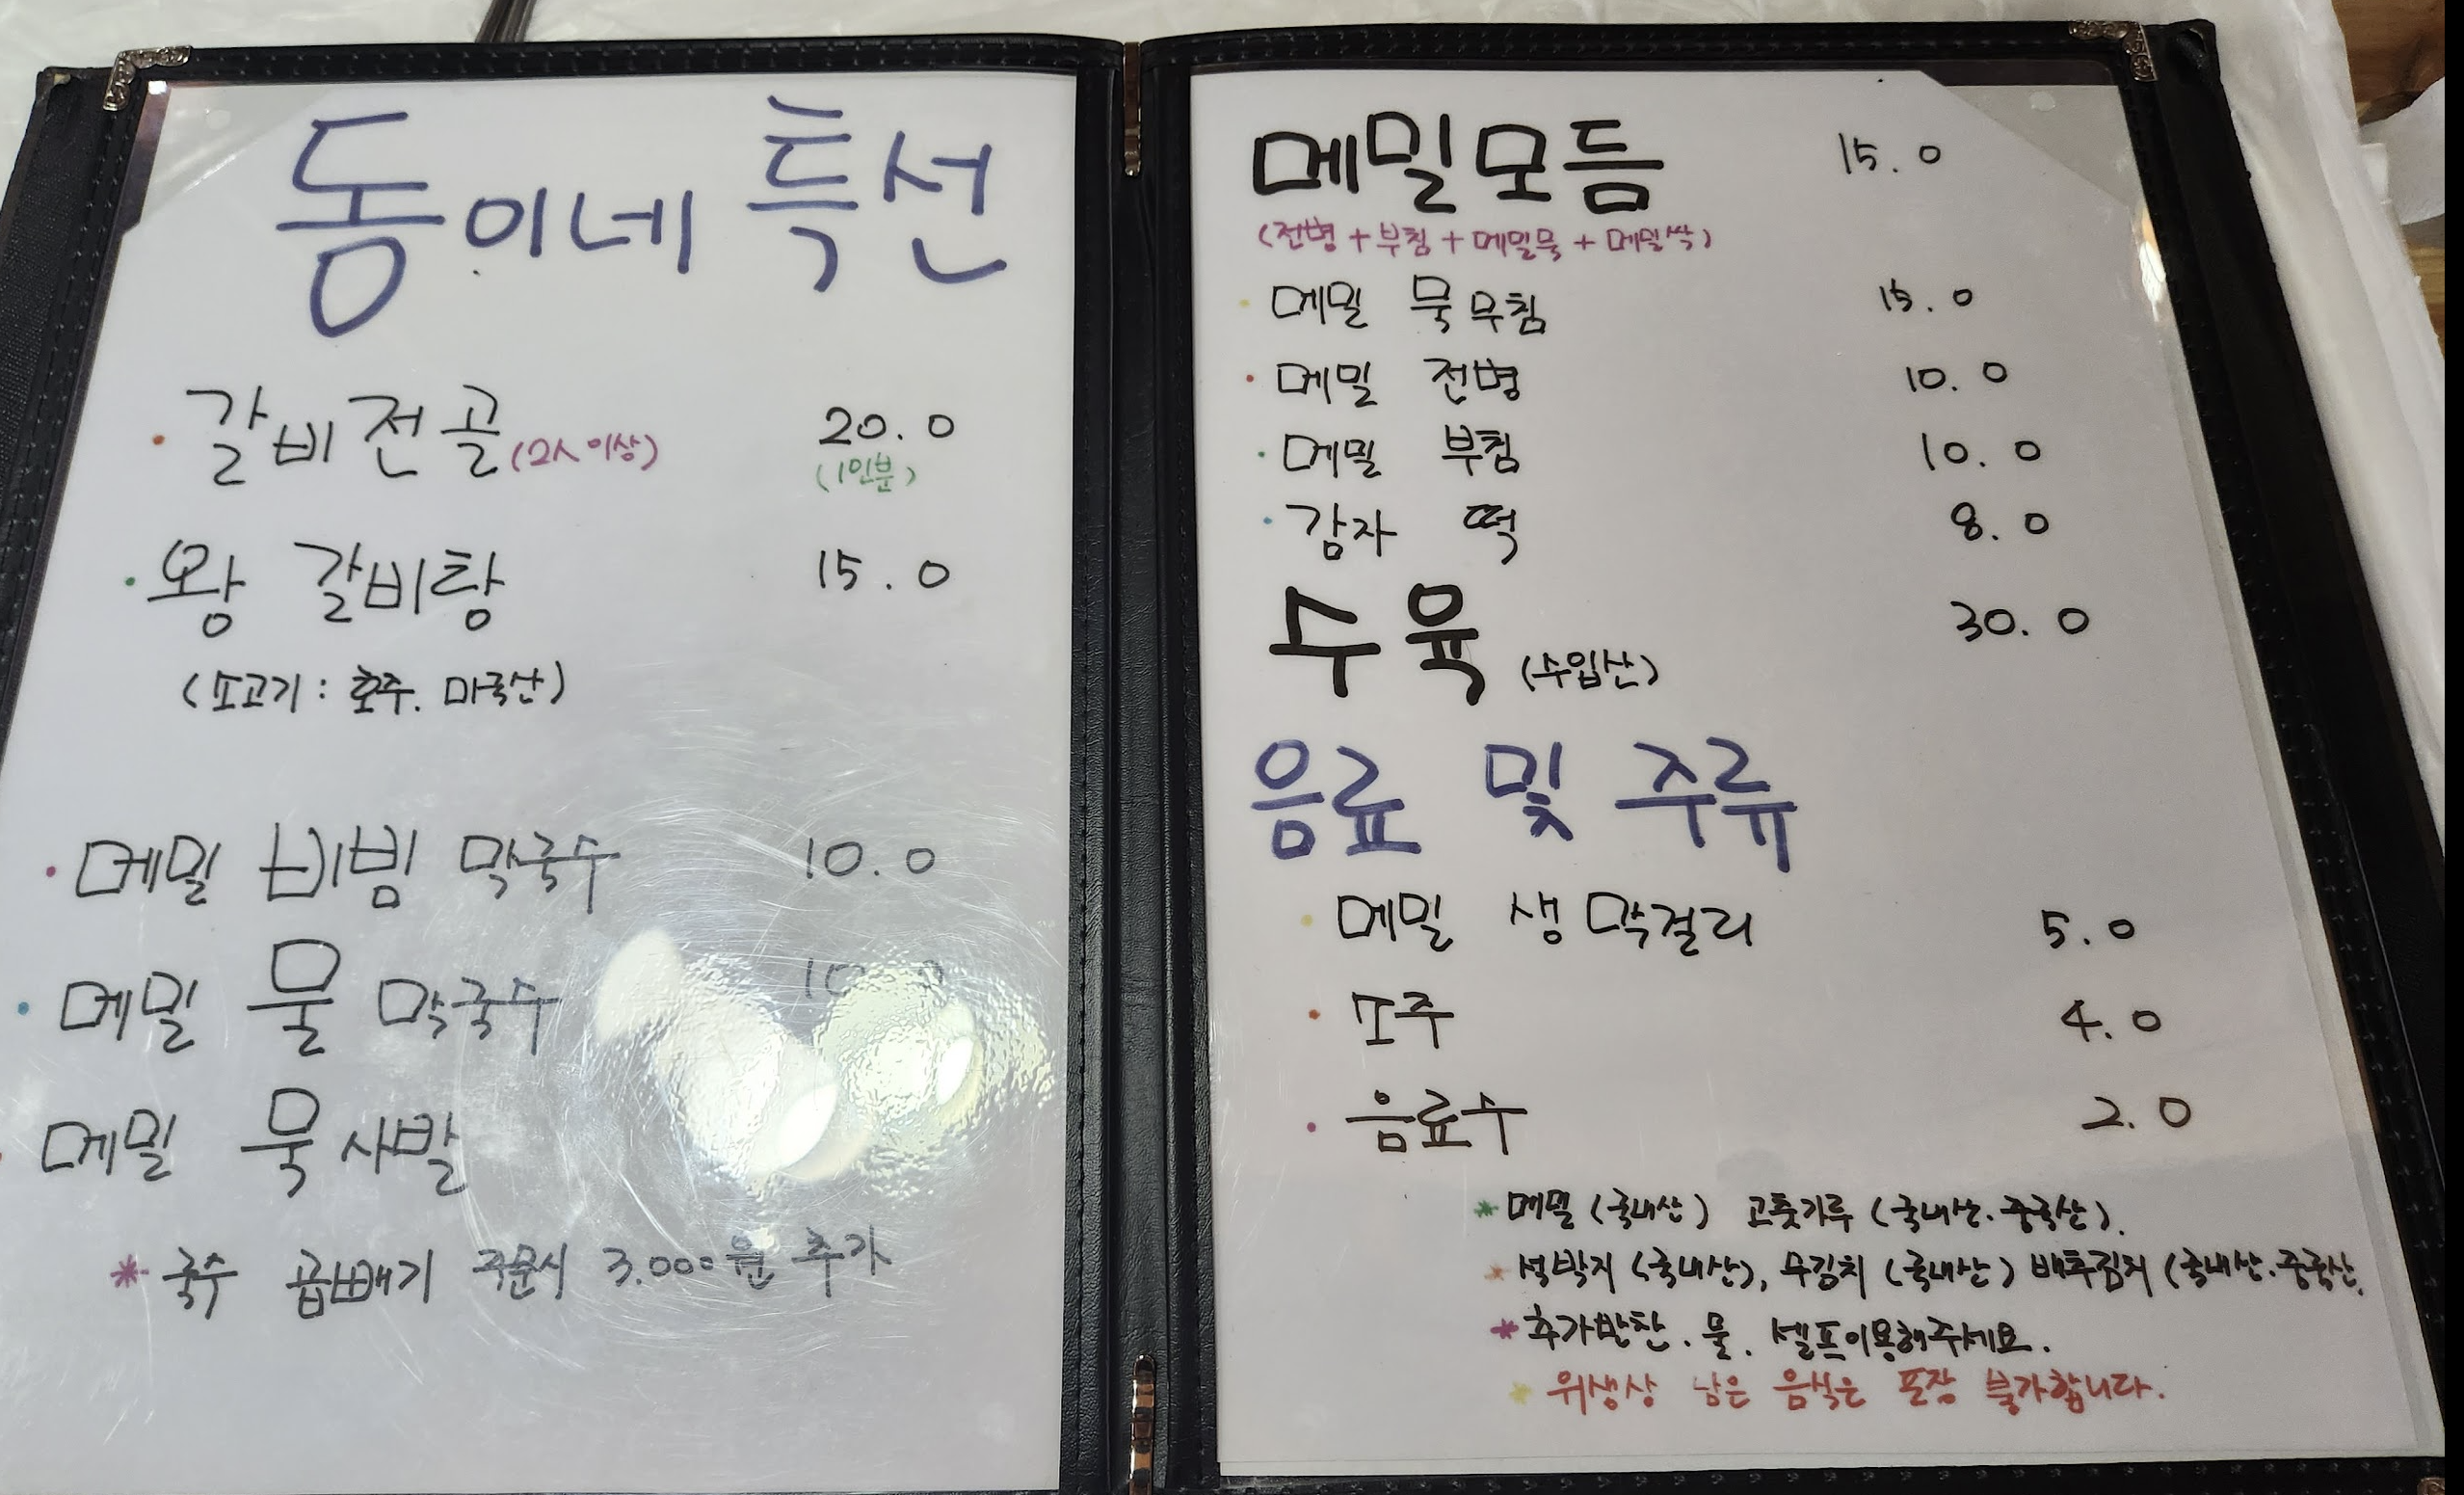 동이네 특선
· 갈비전골 (2人이상) 20.0
(1인분)
· 왕 갈비탕 15.0
(소고기 : 호주. 미국산)
· 메밀 비빔 막국수 10.0
· 메밀 물 막국수 10.0
메밀 묵사발
* 국수 곱빼기 주문시 3.000원 추가
메밀모듬 15.0
(전병 + 부침 + 메밀묵 + 메밀싹)
· 메밀 묵무침 15.0
· 메밀 전병 10.0
· 메밀 부침 10.0
· 감자 떡 8.0
수육 (수입산) 30.0
음료 및 주류
· 메밀 생막걸리 5.0
· 소주 4.0
· 음료수 2.0
* 메밀 (국내산) 고춧가루 (국내산. 중국산).
* 석박지 (국내산), 무김치 (국내산) 배추김치 (국내산. 중국산.
* 추가반찬. 물. 셀프이용해주세요.
* 위생상 남은 음식은 포장 불가합니다.